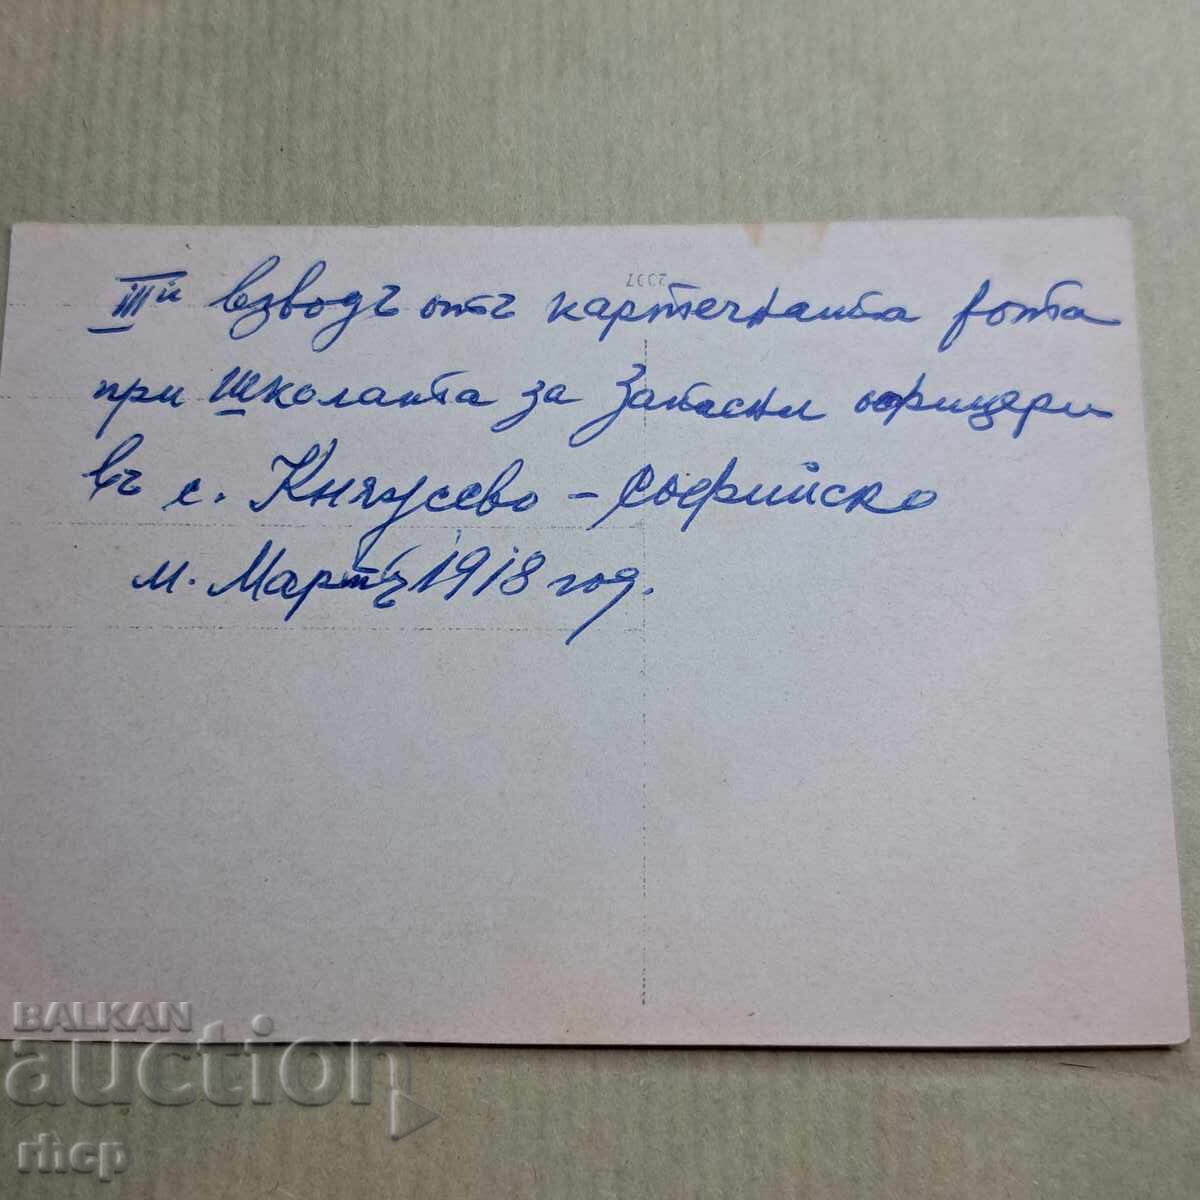 IIIй взводъ отъ картечната рота
при Школата за Запасни офицери
въ с. Княжево - Софийско
м. Мартъ 1918 год.
2397
BALKAN
auction
rhcp